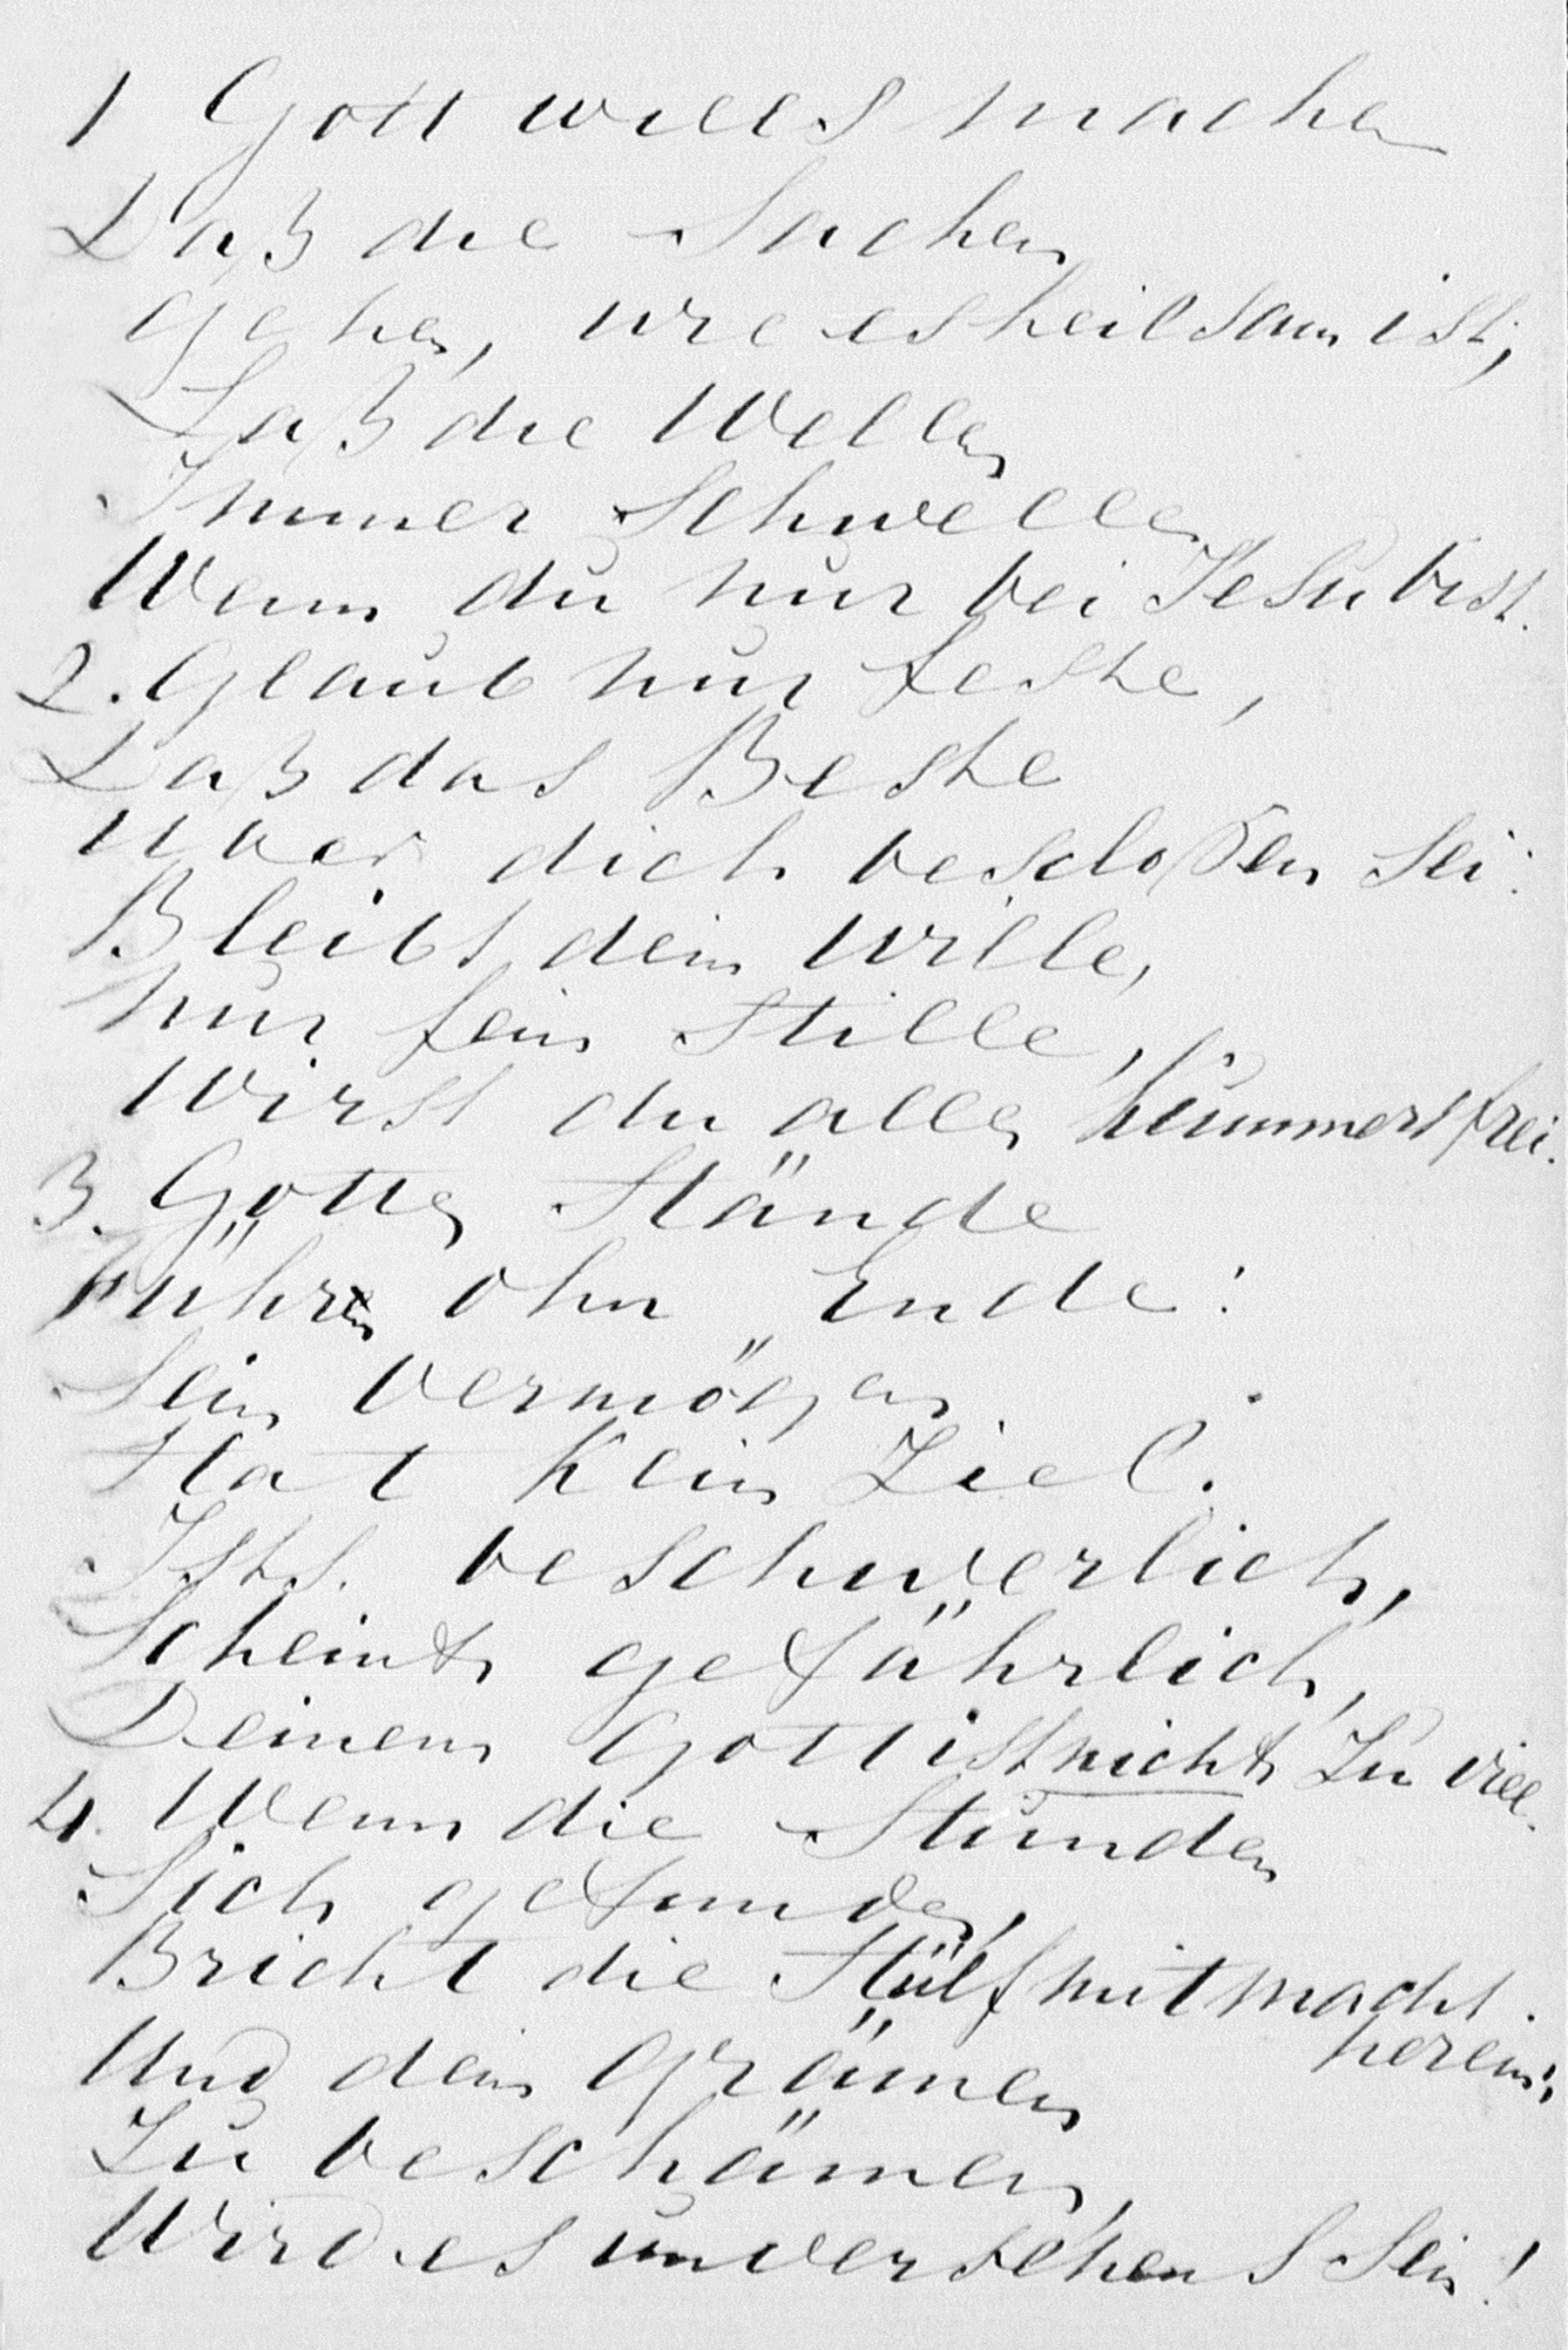 1 Gott wills machen
Daß die Sachen
gehen, wie es heilsam ist;
Laß die Wellen
Immer Schwellen
Wenn du nur bei Jesu bist.
2. Glaub nur feste,
Daß das Beste
uber dich beschloßen sei:
Bleibt dein wille,
nur fein Stille,
wirst du allen kummers frei.
3. Gottes Hände
führen ohn Ende:
Sein Vermögen
Hat kein Ziel.
Ists beschwerlich,
Scheints gefährlich,
Deinem Gott ist nichts zu viel.
4. Wenn die Stunden
Sich gefunden,
Bricht die Hülf mit macht
herein;
Und dein Grämen
Zu beschämen,
Wird es unversehens Sein!